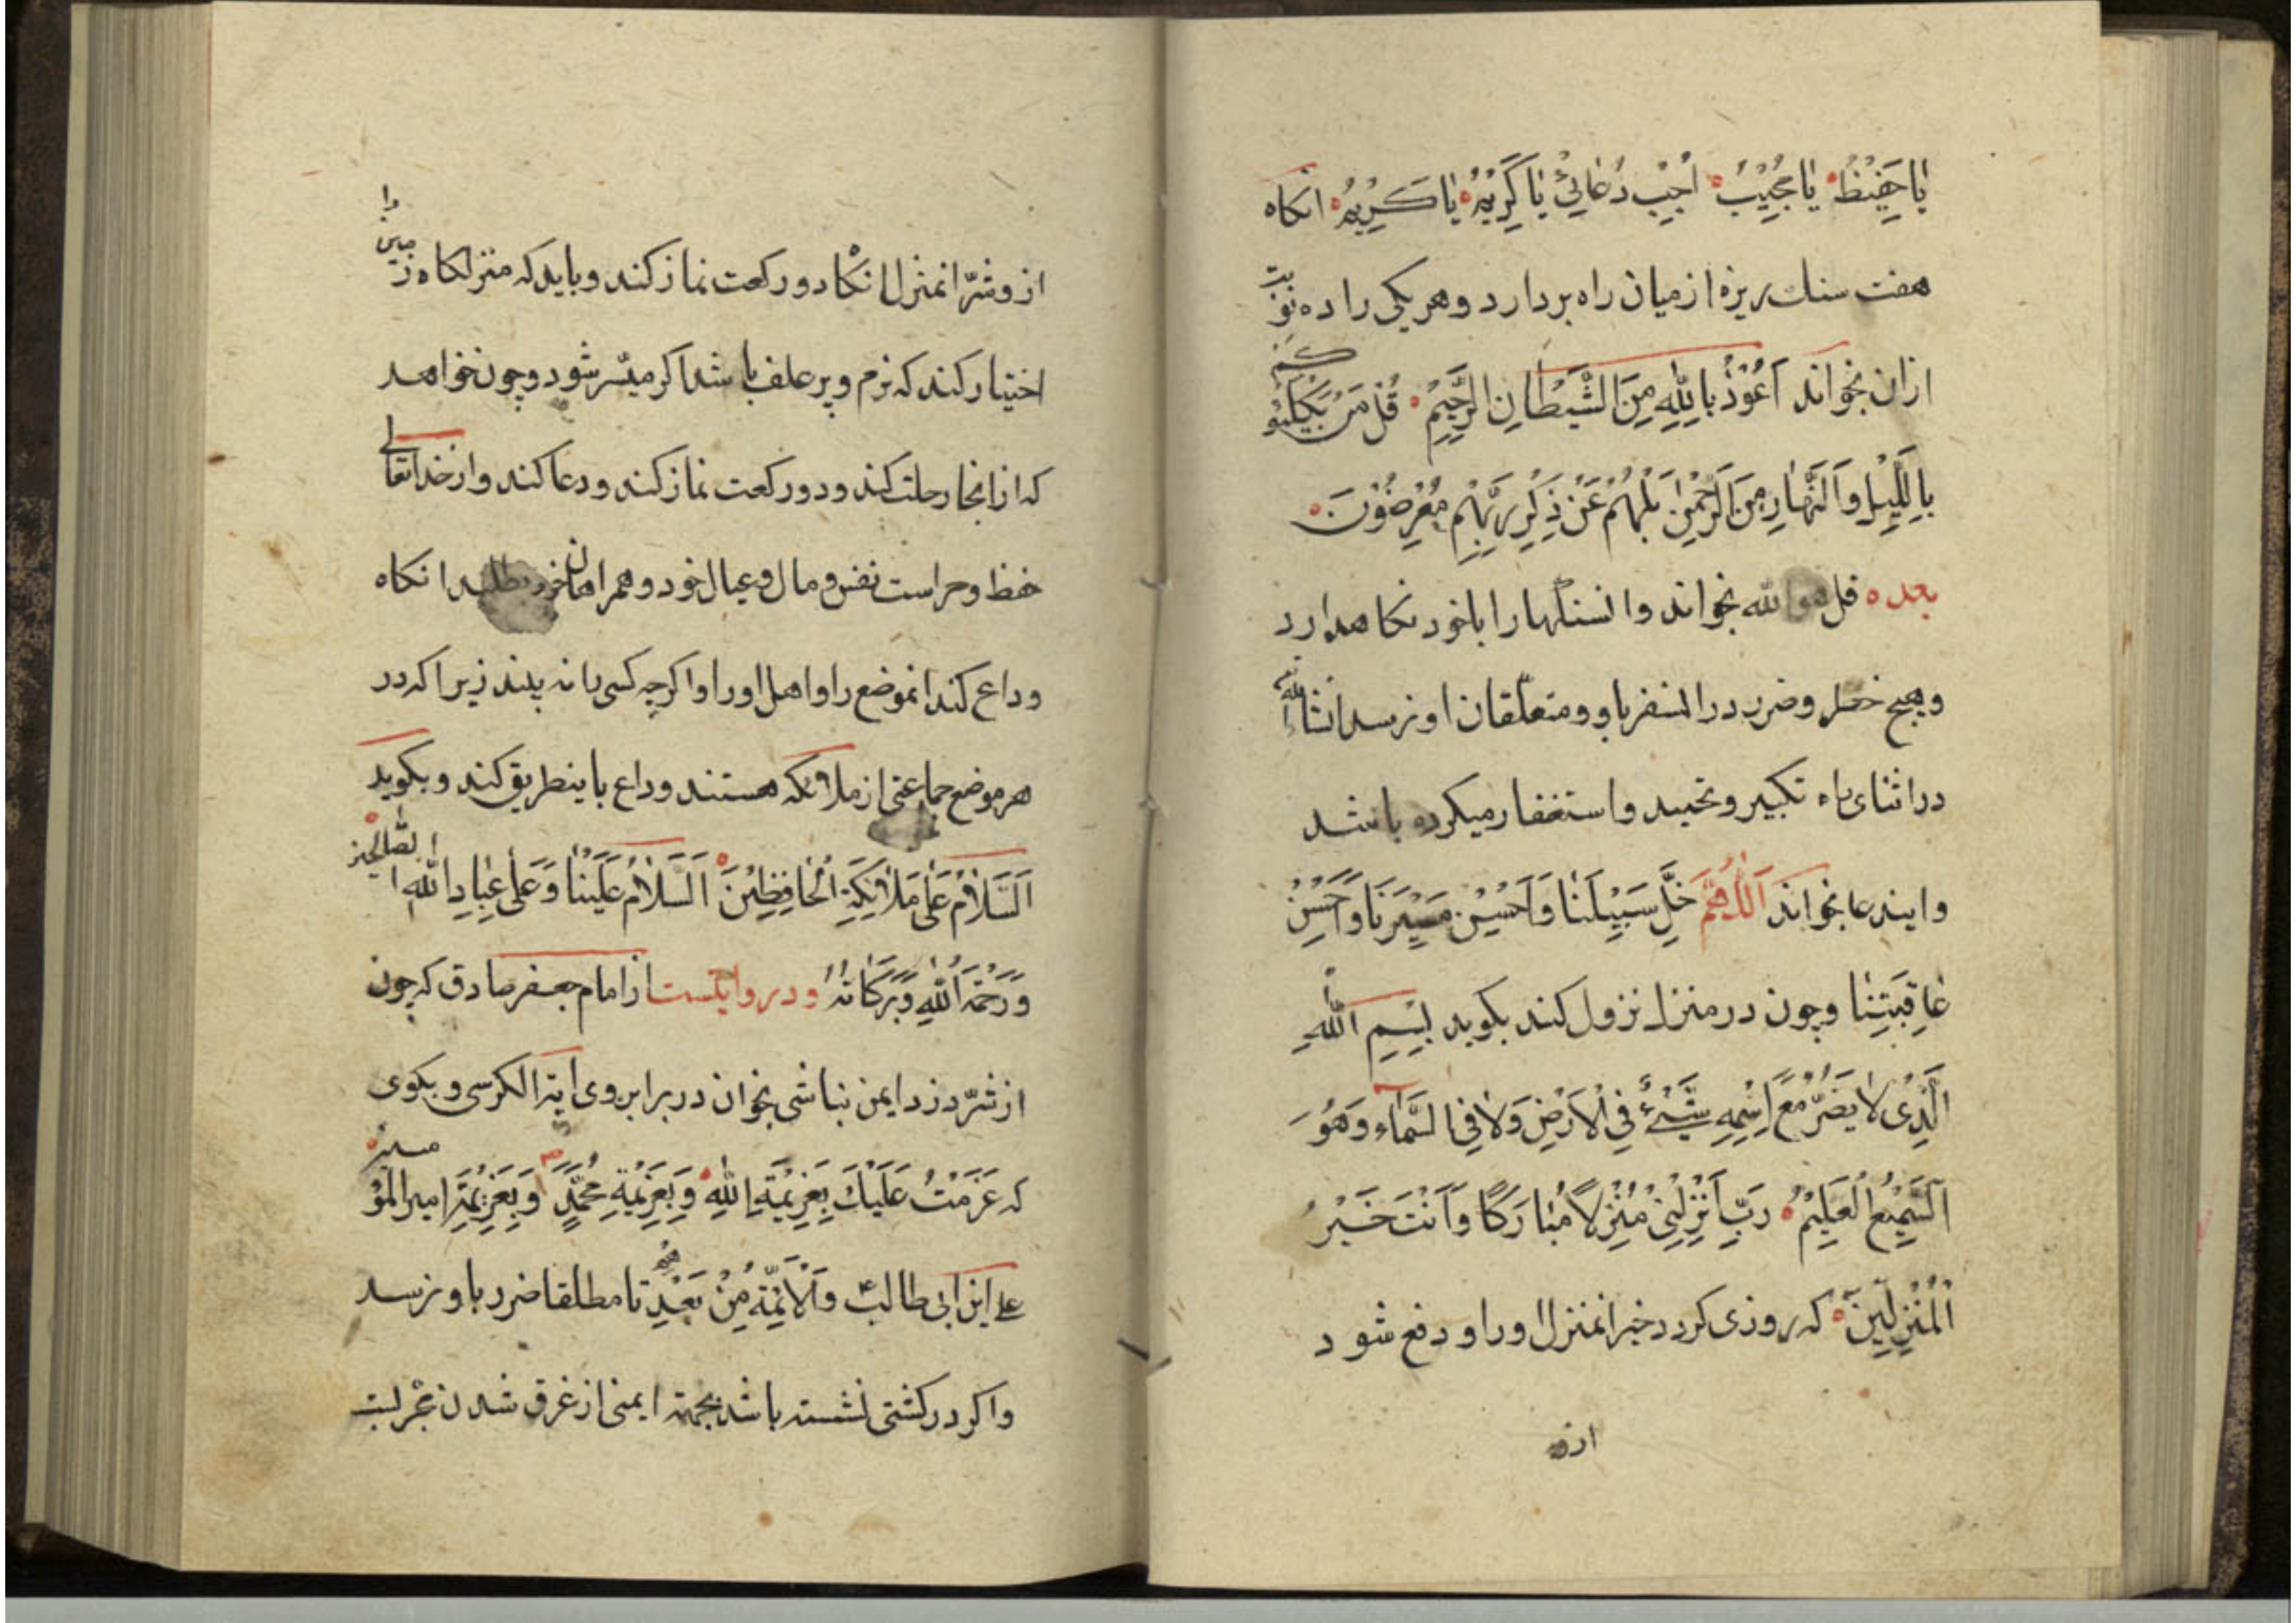 یٰا حَفِیْظُ یٰا مُجِیْبُ اَجِبْ دُعٰائِیْ یٰا کَرِیْمُ یٰا کَرِیْمُ انکاه
هفت سنك ریزه از میان راه بردارد و هر یکی را ده نوبت
ازان بخواند اَعُوْذُ بِاللّٰهِ مِنَ الشَّیْطٰانِ الرَّجِیْمِ قُلْ مَنْ یَکْلَئُوکُمْ
بِاللَّیْلِ وَالنَّهٰارِ مِنَ الرَّحْمٰنِ بَلْ هُمْ عَنْ ذِکْرِ رَبِّهِمْ مُعْرِضُوْنَ
بعده قل هو الله بخواند وانسنکها را با خود نکاهدارد
وهیچ خطر وضرر در انسفر باو ومتعلّقان او نرسد انشاءالله
در اثنای راه تکبیر وتحمید واستغفار میکرده باشد
و ایندعا بخواند اَللّٰهُمَّ خَلِّ سَبِیْلَنٰا وَاَحْسِنْ مَسِیْرَنٰا وَاَحْسِنْ
عٰاقِبَتِنٰا وچون در منزل نزول کند بکوید بِسْمِ اللّٰهِ
الَّذِیْ لٰا یَضُرُّ مَعَ اِسْمِهِ شَیْئٌ فِی الْاَرْضِ وَلٰا فِی السَّمٰاءِ وَهُوَ
السَّمِیْعُ الْعَلِیْمُ رَبِّ اَنْزِلْنِیْ مُنْزَلًا مُبٰارَکًا وَاَنْتَ خَیْرُ
الْمُنْزِلِیْنَ که روزی کردد خیر انمنزل اورا و دفع شود
ازو
ازو شرّ انمنزل انکاه دو رکعت نماز کند وباید که منزلکاه زمین را
اختیار کند که نرم و پر علف باشد اکر میسّر شود و چون خواهد
که از انجا رحلت کند و دو رکعت نماز کند ودعا کند واز خدایتعالی
حفظ وحراست نفس ومال وعیال خود وهمراهان خود بطلبد انکاه
وداع کند انموضع را واهل اورا واکرچه کسی را نه بیند زیرا که در
هر موضع جماعتی از ملائکه هستند وداع باینطریق کند وبکوید
اَلسَّلٰامُ عَلٰی مَلٰائِکَةِ الْحٰافِظِیْنَ اَلسَّلٰامُ عَلَیْنٰا وَعَلٰی عِبٰادِ اللّٰهِ الصّٰالِحِیْنَ
وَرَحْمَةُ اللّٰهِ وَبَرَکٰاتُهُ ودر روایتست از امام جعفر صادق که چون
از شرّ دزد ایمن نباشی بخوان در برابر وی ایة الکرسی وبکوی
که عَزَمْتُ عَلَیْكَ بِعَزِیْمَةِ اللّٰهِ وَبِعَزِیْمَةِ مُحَمَّدٍ وَبِعَزِیْمَةِ امیر المؤمنین
علی ابن ابی طالب وَالْاَئِمَّةِ مِنْ بَعْدِهِ تا مطلقا ضرر باو نرسد
واکر در کشتی نشسته باشد بجهة ایمنی از غرق شدن